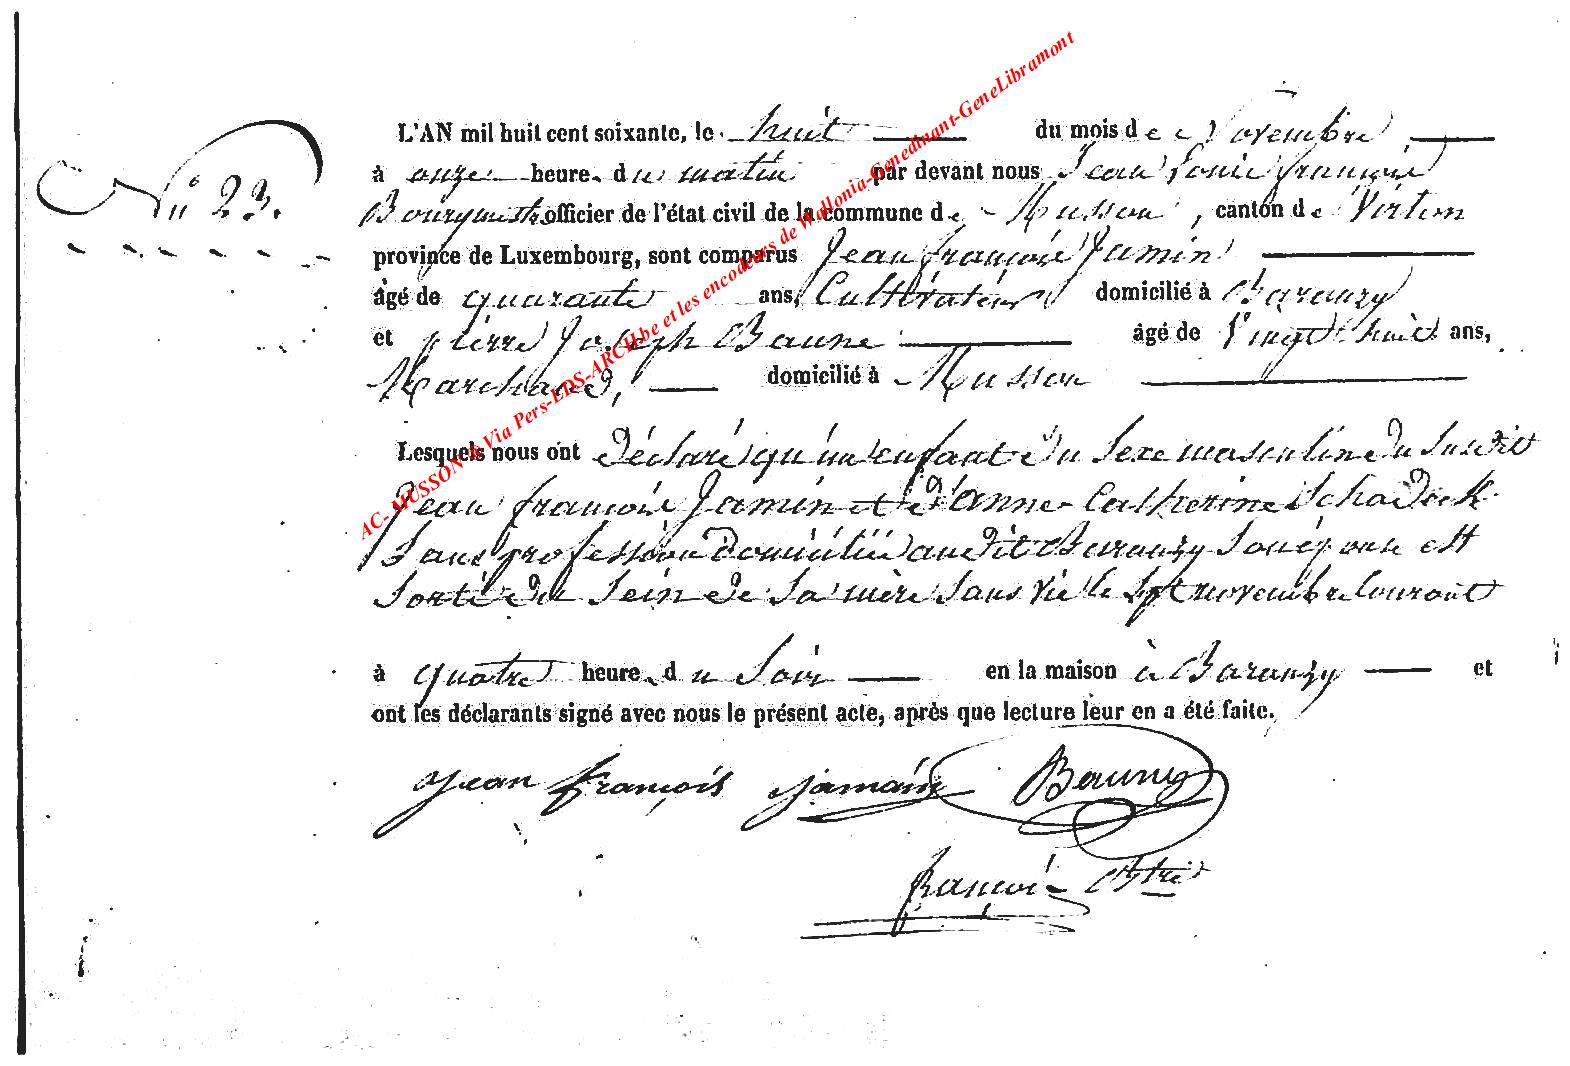 N° 23.
L'AN mil huit cent soixante, le huit du mois de Novembre
à onze heure du matin par devant nous Jean Louis françois
Bourgmestre officier de l'état civil de la commune de Musson, canton de Virton
province de Luxembourg, sont comparus Jean françois Jamin
âgé de quarante ans, Cultivateur domicilié à Baranzy
et pierre Joseph Baune âgé de Vingt huit ans,
Marchand, domicilié à Musson
Lesquels nous ont déclaré qu'un enfant du sexe masculin du susdit
Jean françois Jamin et d'anne Catherine Schadeck
sans profession domicilié audit Baranzy son épouse est
sorti du sein de sa mère sans vie le sept novembre courant
à quatre heure du soir en la maison à Baranzy et
ont les déclarants signé avec nous le présent acte, après que lecture leur en a été faite.
Jean françois jamain Baune
françois
AC-MUSSON & Via Pers-EDS-ARCH-be et les encodeurs de Wallonia-Genedinant-GeneLibramont